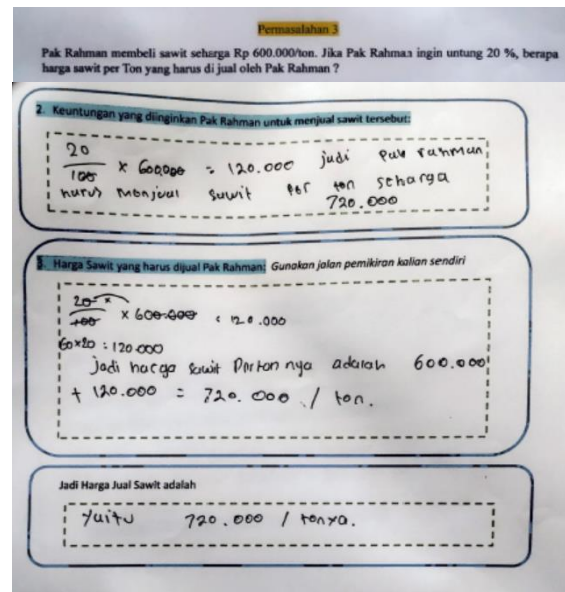 Permasalahan 3
Pak Rahman membeli sawit seharga Rp 600.000/ton. Jika Pak Rahman ingin untung 20 %, berapa
harga sawit per Ton yang harus di jual oleh Pak Rahman ?
2. Keuntungan yang diinginkan Pak Rahman untuk menjual sawit tersebut:
20/100 × 600.000 = 120.000 judi Pak rahman
harus menjual sawit per ton seharga
720.000
3. Harga Sawit yang harus dijual Pak Rahman: Gunakan jalan pemikiran kalian sendiri
20/100 × 600.000 = 120.000
60×20 : 120.000
jadi harga sawit Perton nya adalah 600.000
+ 120.000 = 720.000 / ton.
Jadi Harga Jual Sawit adalah
Yaitu 720.000 / tonya.